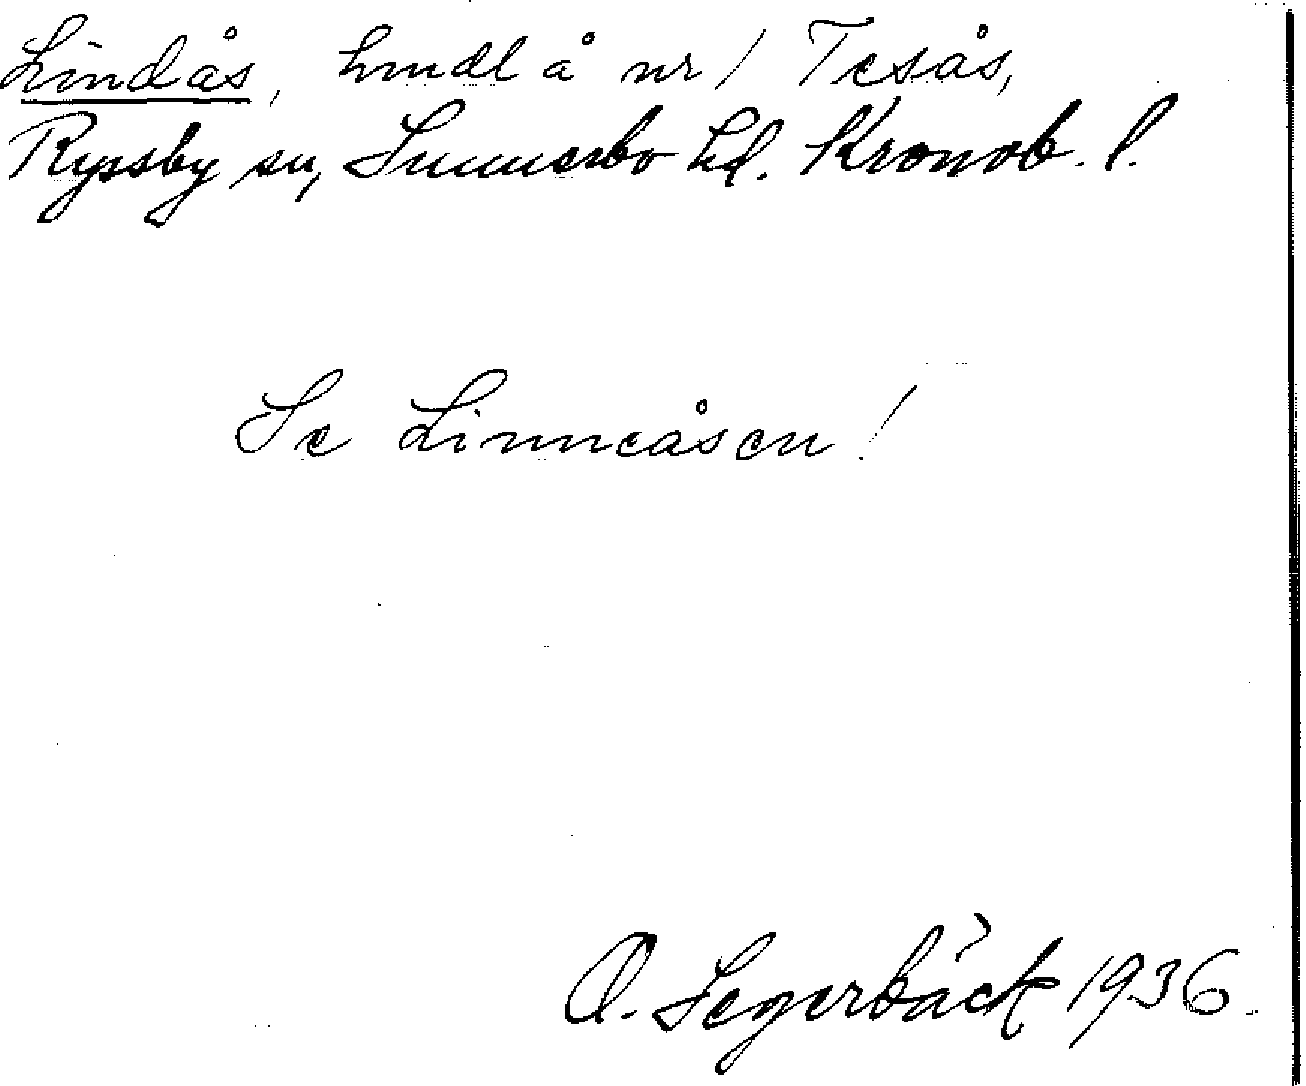 Lindås, hmdl å nr 1 Tesås,
Ryssby sn, Sunnerbo hd. Kronob. l.
Se Linneåsen!
O. Segerbäck 1936.